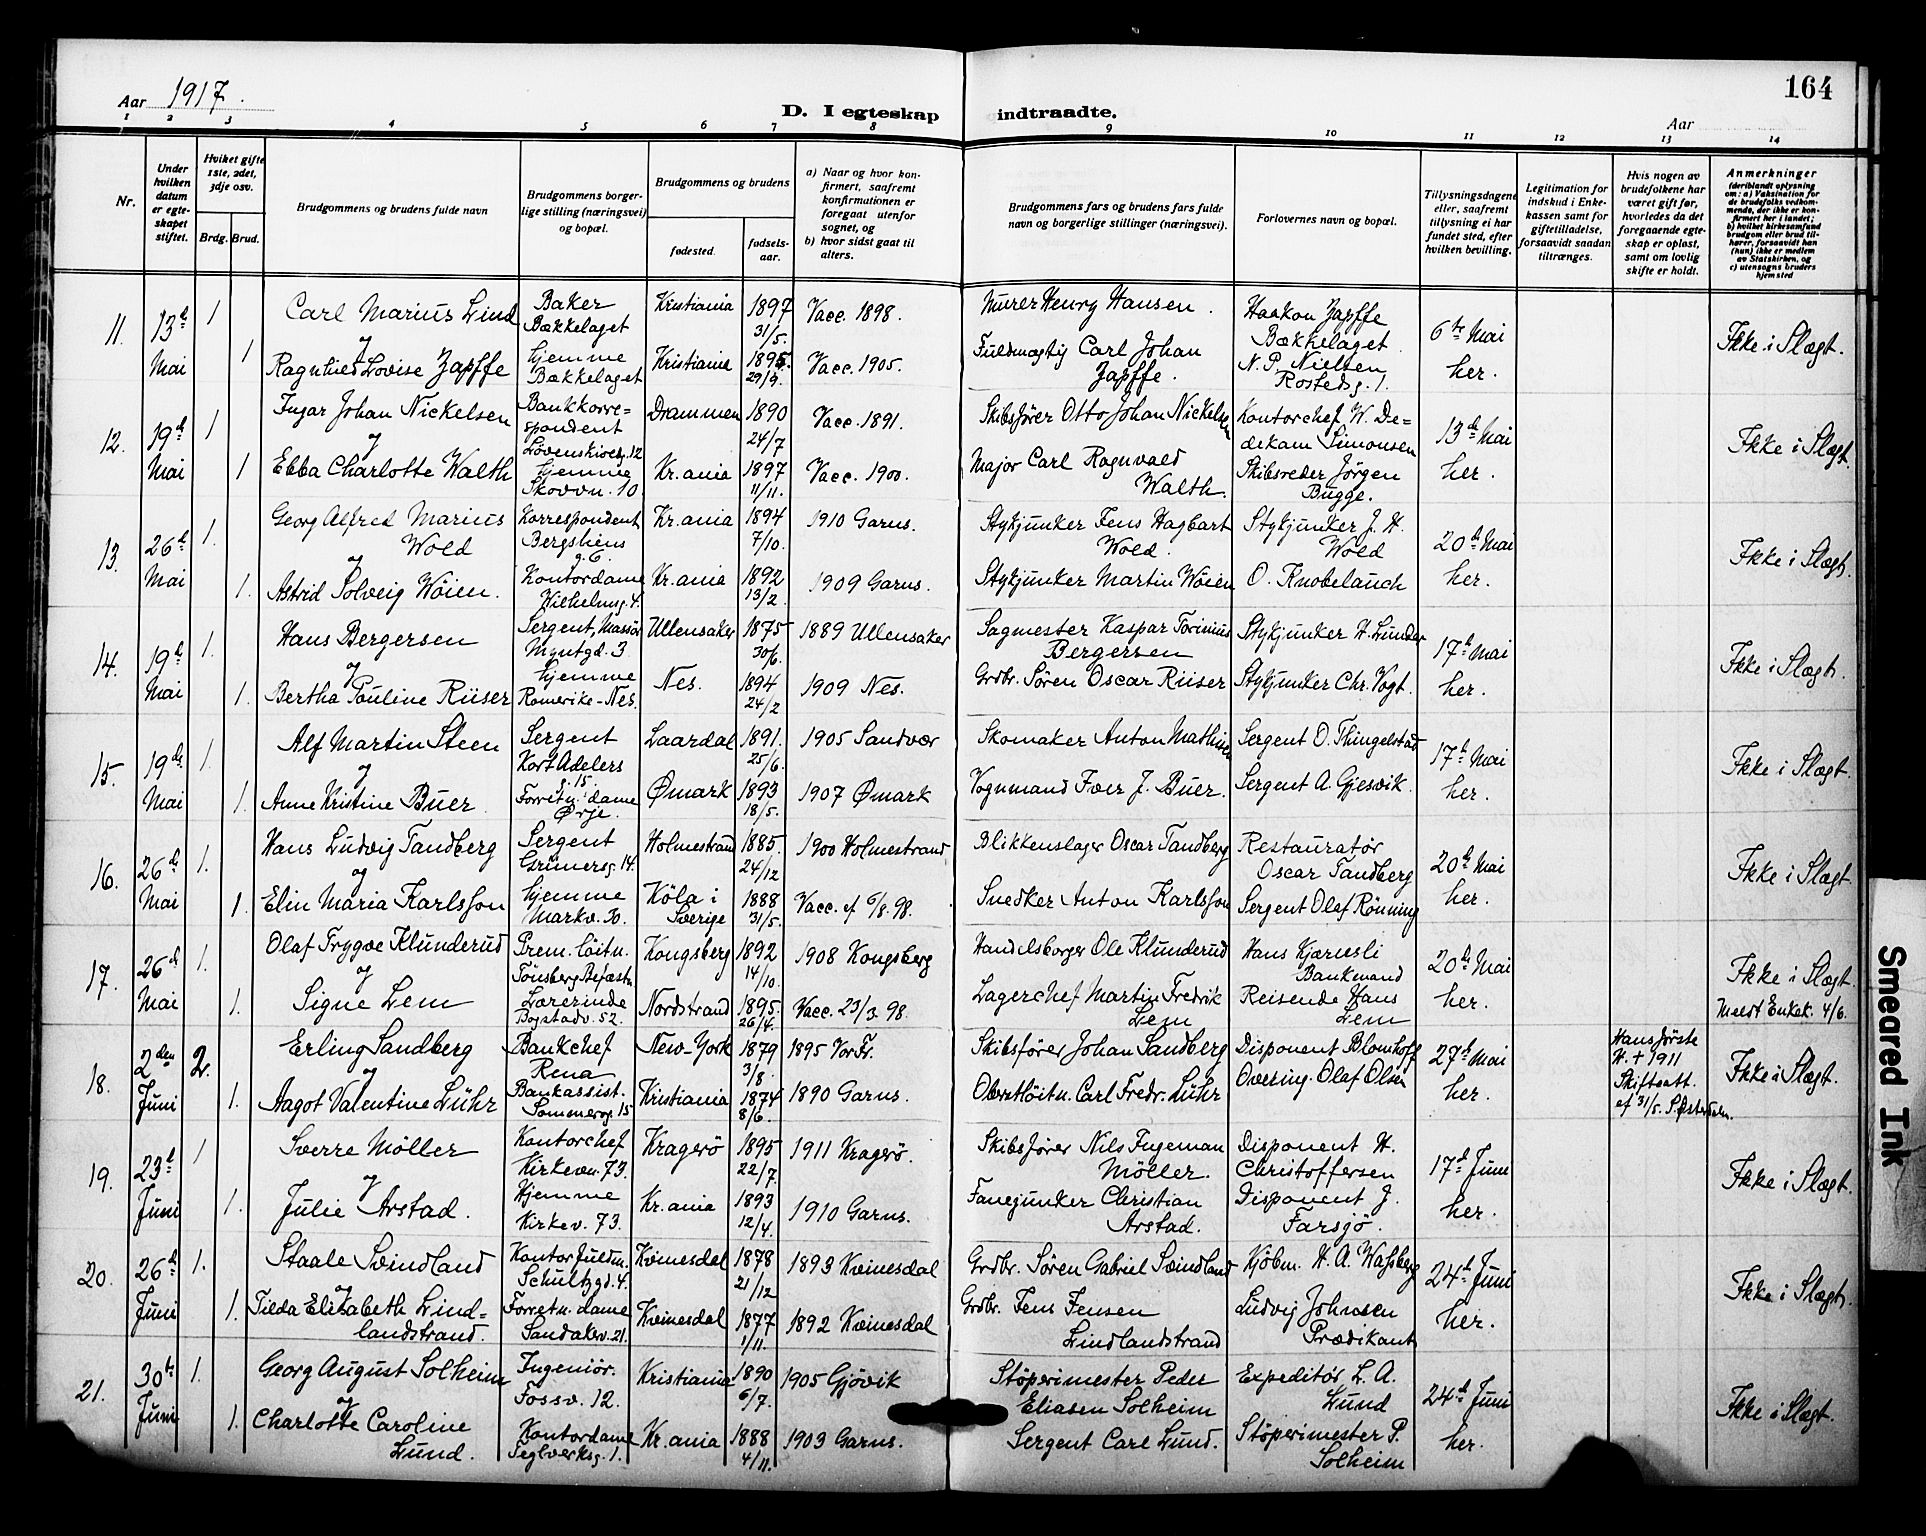 164
Aar 1917.
D. I egteskap indtraadte.
Aar
1 2 3 4 5 6 7 8 9 10 11 12 13 14
Nr.
Under hvilken datum er egteskapet stiftet.
Hvilket gifte 1ste, 2det, 3dje osv.
Brdg. Brud.
Brudgommens og brudens fulde navn
Brudgommens borgerlige stilling (næringsvei) og bopæl.
Brudgommens og brudens
fødested.
fødselsaar.
a) Naar og hvor konfirmert, saafremt konfirmationen er foregaat utenfor sognet, og
b) hvor sidst gaat til alters.
Brudgommens fars og brudens fars fulde navn og borgerlige stillinger (næringsvei).
Forlovernes navn og bopæl.
Tillysningsdagene eller, saafremt tillysning ei har fundet sted, efter hvilken bevilling.
Legitimation for indskud i Enkekassen samt for giftetilladelse, forsaavidt saadan tiltrænges.
Hvis nogen av brudefolkene har været gift før, hvorledes da det foregaaende egteskap er opløst, samt om lovlig skifte er holdt.
Anmerkninger
(deriblandt oplysning om: a) Vaksination for de brudefolks vedkommende, der ikke er konfirmert her i landet; b) hvilket kirkesamfund brudgom eller brud tilhører, forsaavidt han (hun) ikke er medlem av Statskirken, og c) utensogns bruders hjemsted
11. 13de Mai 1 Carl Marius Lind Baker Bækkelaget Kristiania 1897 31/5. Vacc. 1898. Murer Henry Hansen. Haakon Zapffe Bækkelaget 6te Mai her. Ikke i Slægt.
og
1 Ragnhild Lovise Zapffe hjemme Bækkelaget Kristiania 1895. 29/9. Vacc. 1905. Fuldmægtig Carl Johan Zapffe. N. P. Nielsen Rostedsg. 1.
12. 19de Mai 1 Ingar Johan Nickelsen Bankkorrespondent Løvenskioldsg. 12 Drammen 1890 24/7 Vacc. 1891. Skibsfører Otto Johan Nickelsen Kontorchef W. Dedekam Simonsen 13de Mai her. Ikke i Slægt.
og
1 Ebba Charlotte Walth hjemme Skovvn. 10 Kr.ania 1897 11/11. Vacc. 1900. Major Carl Ragnvald Walth. Skibsreder Jørgen Bugge.
13. 26de Mai 1. Georg Alfred Marius Wold Korrespondent Bergsliens g. 6 Kr.ania 1894 7/10. 1910 Garns. Stykjunker Jens Hagbart Wold. Stykjunker J. H. Wold 20de Mai her. Ikke i Slægt.
og
1. Astrid Solveig Wøien. Kontordame Wilhelmsg. 4. Kr.ania 1892 13/2. 1909 Garns. Stykjunker Martin Wøien O. Knobelauch
14. 19de Mai 1. Hans Bergersen Sergent, Massør Myntgd. 3 Ullensaker 1875 30/6. 1889 Ullensaker Sagmester Kaspar Torinius Bergersen Stykjunker H. Lunder 17de Mai her. Ikke i Slægt.
og
1. Bertha Pauline Riiser hjemme Romerike-Nes. Nes. 1894 24/2 1909 Nes. Grdbr. Søren Oscar Riiser Stykjunker Chr. Vogt.
15. 19de Mai 1. Alf Martin Steen Sergent Kort Adelers g. 15 Laardal 1891. 25/6. 1905 Sandvær Skomaker Anton Mathisen Sergent O. Thingelstad 17de Mai her. Ikke i Slægt.
og
1. Anne Kristine Buer Forretn.dame Ørje. Ømark 1893 18/5. 1907 Ømark Vognmand Iver J. Buer. Sergent A. Gjesvik.
16. 26de Mai 1. Hans Ludvig Tandberg Sergent Grünersg. 14. Holmestrand 1885. 24/12 1900 Holmestrand Blikkenslager Oscar Tandberg Restauratør Oscar Tandberg 20de Mai her. Ikke i Slægt.
og
1. Elin Maria Karlsson hjemme Markv. 30. Köla i Sverige 1888 31/5. Vacc. ef 6/8. 98. Snedker Anton Karlsson Sergent Olaf Rønning
17. 26de Mai 1. Olaf Trygve Klunderud Prem. løitn. Tønsberg Befæstn. Kongsberg 1892 14/10. 1908 Kongsberg Handelsborger Ole Klunderud Hans Kjærnsli Bankmand 20de Mai her. Ikke i Slægt.
og
1. Signe Lem Lærerinde Bogstadv. 52. Nordstrand 1895. 26/4. Vacc. 23/3. 98. Lagerchef Martin Fredrik Lem Reisende Hans Lem Meldt Enkek. 4/6.
18. 2den Juni 2. Erling Sandberg Bankchef Rena New-York 1879 3/8. 1895 Vor Fr. Skibsfører Johan Sandberg Disponent Blomhoff 27de Mai her. Hans første H. † 1911 Skifteatt. ef 31/5. S. Østerdalen. Ikke i Slægt.
og
1. Aagot Valentine Lühr Bankassist. Sommerrog. 15 Kristiania 1874 8/6. 1890 Garns. Oberstløitn. Carl Fredr. Lühr Overing. Olaf Olsen
19. 23de Juni 1 Sverre Møller Kontorchef Kirkevn. 73. Kragerø 1895 22/7. 1911 Kragerø. Skibsfører Nils Ingeman Møller. Disponent H. Christoffersen 17de Juni her. Ikke i Slægt.
og
1. Julie Arstad. Hjemme Kirkev. 73. Kr.ania 1893 12/4. 1910 Garns. Fanejunker Christian Arstad. Disponent J. Farsjø.
20. 26de Juni 1. Staale Svindland Kontorfuldm. Schultzgd. 4. Kvinesdal 1878 21/12 1893 Kvinesdal Grdbr. Søren Gabriel Svindland Kjøbm. H. A. Wahsberg 24de Juni her. Ikke i Slægt.
og
1. Tilda Elizabeth Lindlandstrand. Forretn. dame Sandakerv. 21. Kvinesdal 1877 1/11. 1892 Kvinesdal Grdbr. Jens Jensen Lindlandstrand Ludvig Johnsen Prædikant
21. 30te Juni 1. Georg August Solheim Ingeniør. Fossv. 12. Kristiania 1890 6/7. 1905 Gjøvik Støperimester Peder Eliasen Solheim Expeditør L. A. Lund 24de Juni her. Ikke i Slægt.
og
1. Charlotte Caroline Lund. Kontordame Teglverksg. 1. Kr.ania 1888 4/11. 1903 Garns. Sergent Carl Lund. Støperimester P. Solheim
Smeared Ink